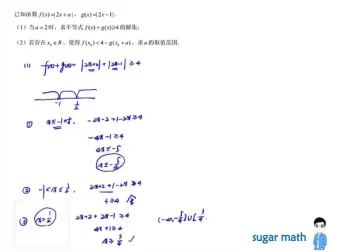 已知函数 f(x)=|2x+a|，g(x)=|2x-1|.
(1) 当 a=2 时，求不等式 f(x)+g(x)≥4 的解集;
(2) 若存在 x₀∈R，使得 f(x₀)<4-g(x₀+a)，求 a 的取值范围.
(1) f(x)+g(x)= |2x+2|+|2x-1| ≥4
-1 ½
① x≤-1时, -2x-2+1-2x≥4
-4x-1≥4
4x≤-5
x≤-5/4
② -1<x≤½, 2x+2+1-2x≥4
3≥4
③ x>½ 2x+2+2x-1≥4
4x+1≥4
x≥¾ ✓
(-∞,-5/4]∪[¾
sugar math